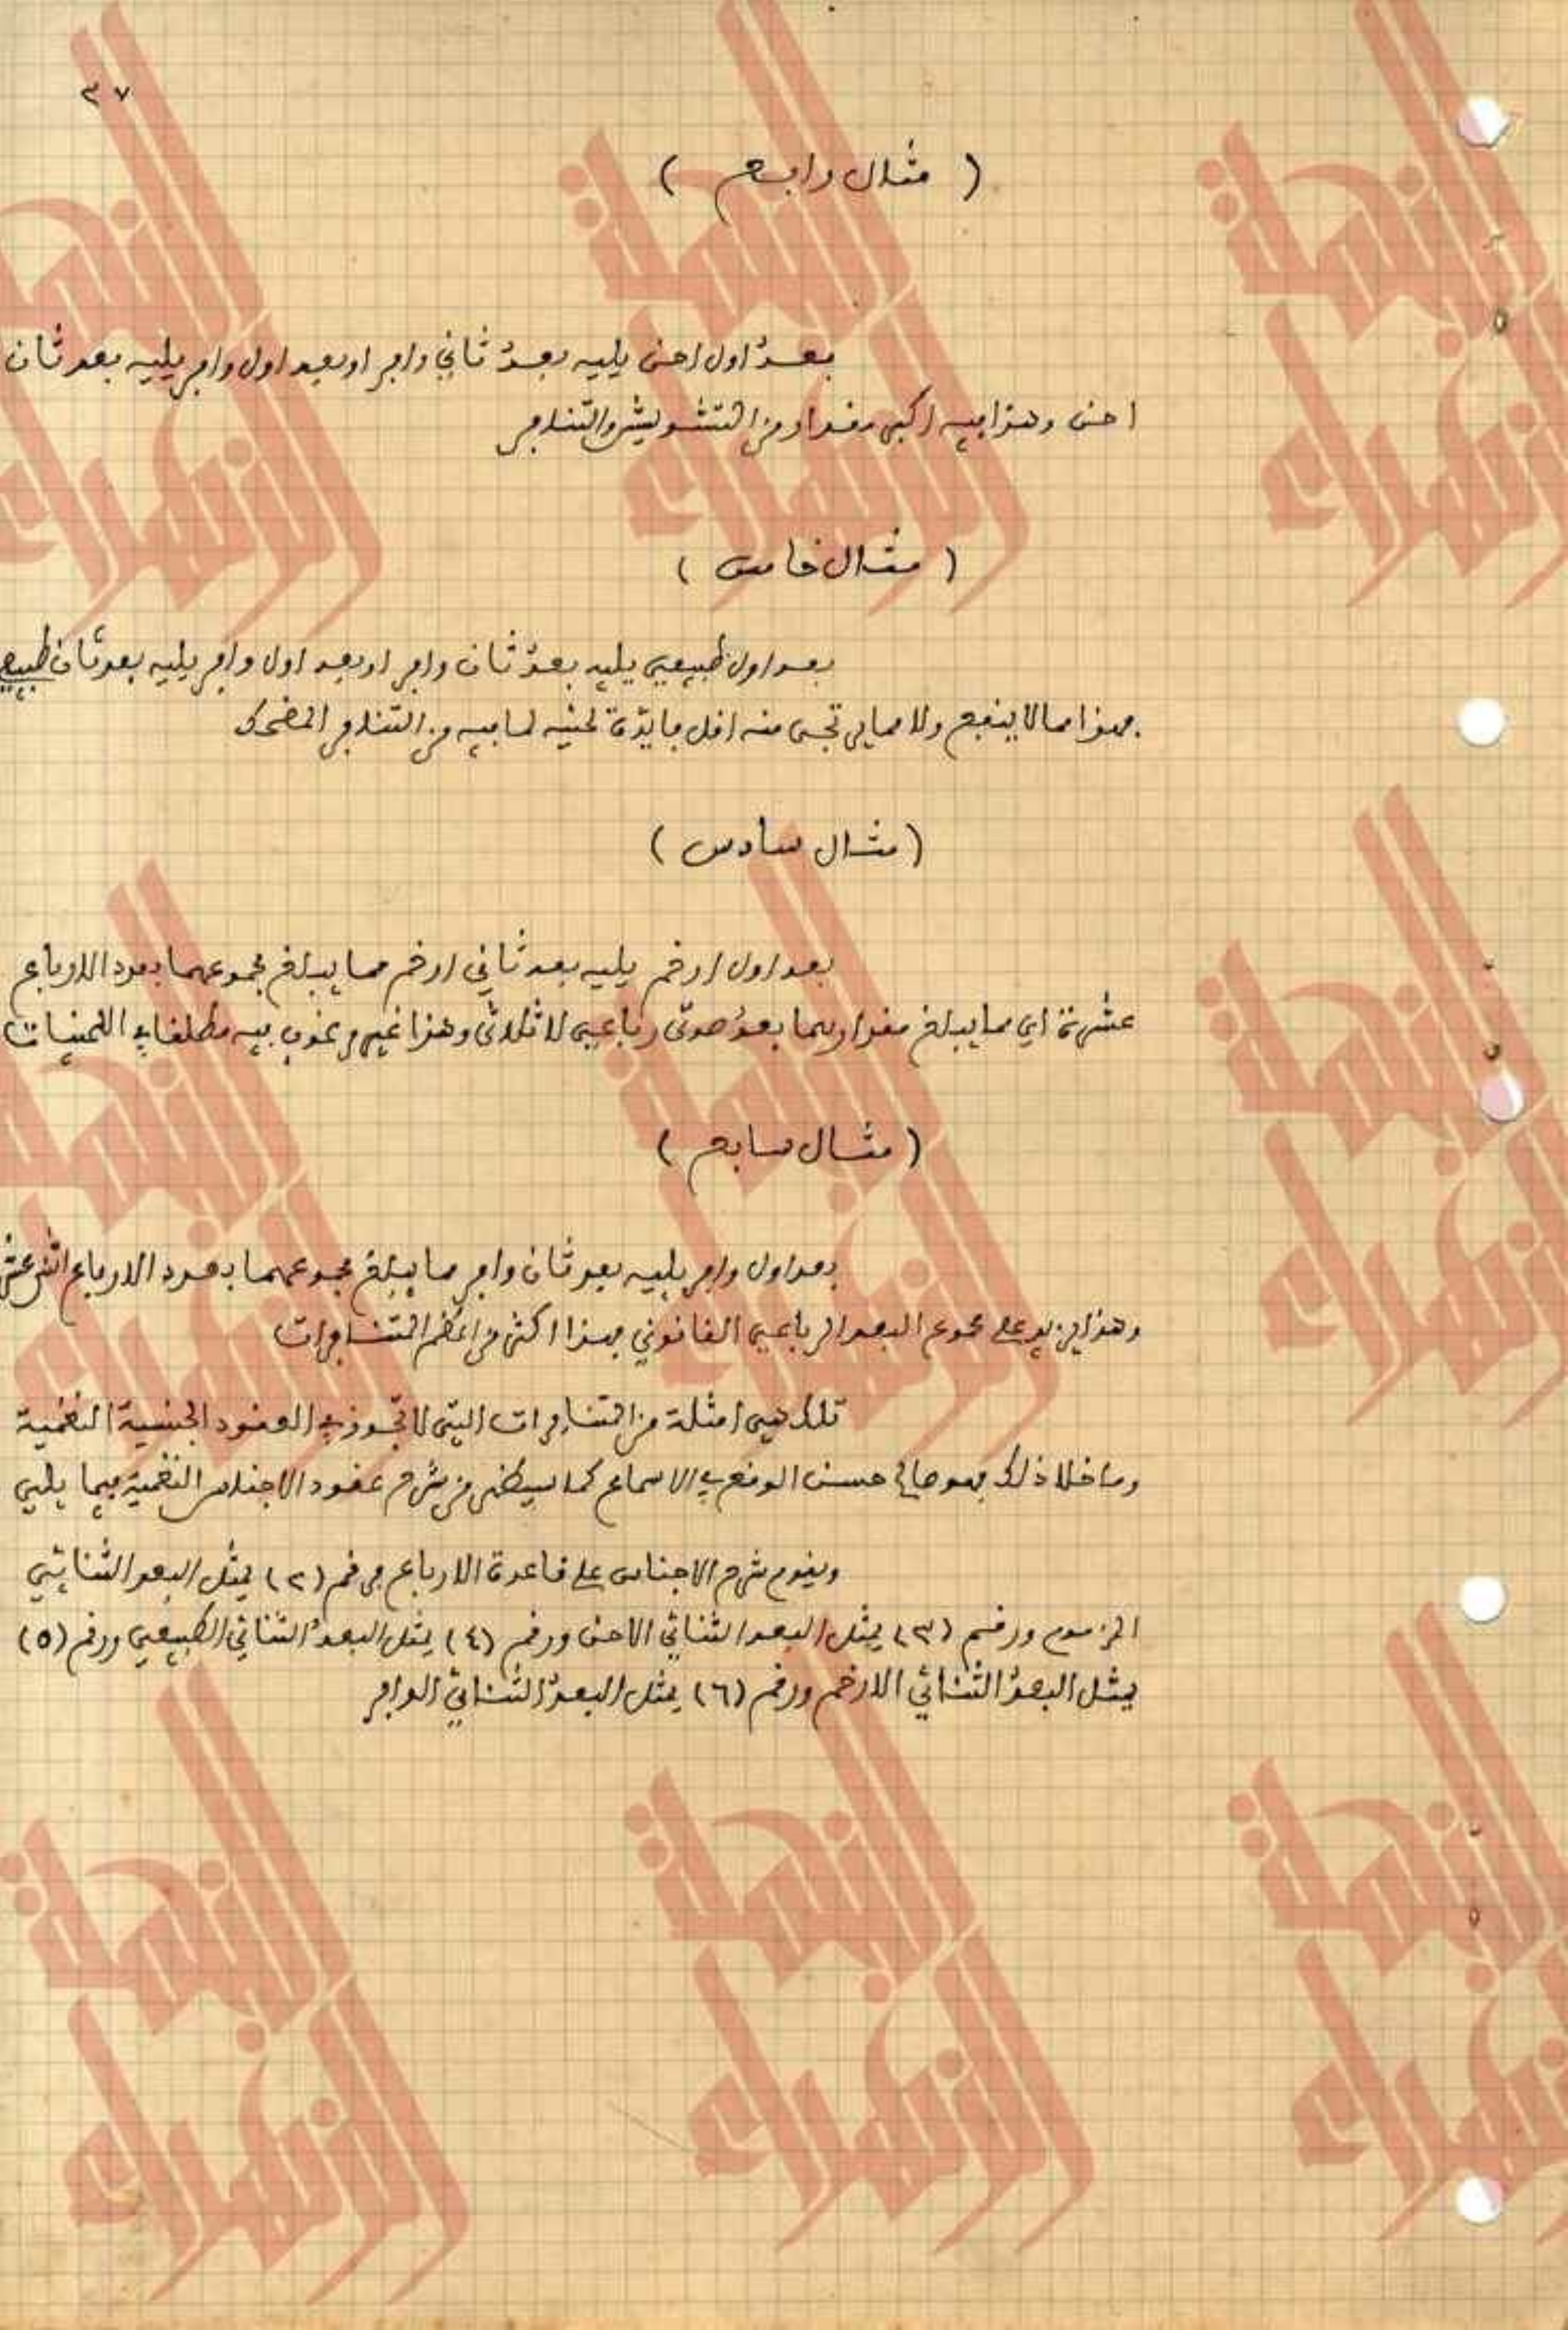 ٣٧
( مثال رابع )
بعدٌ اول احن يليه بعدٌ ثاني وافر او بعد اول وافر يليه بعد ثان
احن وهذا فيه اكبر مقدار من التشويش والتنافر
( مثال خامس )
بعد اول طبيعي يليه بعدٌ ثان وافر او بعد اول وافر يليه بعد ثان طبيعي
فهذا مما لا ينفع ولا مما يرتجى منه اقل فائدة لحنيه لما فيه من التنافر المضحك
( مثال سادس )
بعد اول ارخم يليه بعد ثاني ارخم مما يبلغ مجموعهما بعدد الارباع
عشرة اي مما يبلغ مقدارهما بعدُ صوتى رباعي لا ثلاثى وهذا غير مرغوب فيه مطلقا في اللحنيات
( مثال سابع )
بعد اول وافر يليه بعد ثان وافر مما يبلغ مجموعهما بعدد الارباع اثنى عشر
وهذا يزيد على مجموع البعد الرباعي القانوني فهذا اكثر من اعظم المتنافرات
تلك هي امثلة من المتنافرات التي لا تجوز في العقود الجنسية النغمية
وما خلا ذلك فهو صالح حسن الوقع في الاسماع كما سيظهر من شرح عقود الاجناس النغمية فيما يلي
ويقوم شرح الاجناس على قاعدة الارباع فرقم (٢) يمثل البعد الثنائي
المزموم ورقم (٣) يمثل البعد الثنائي الاحن ورقم (٤) يمثل البعدُ الثنائي الطبيعي ورقم (٥)
يمثل البعدُ الثنائي الارخم ورقم (٦) يمثل البعدُ الثنائي الوافر
النهضة
الزهراء